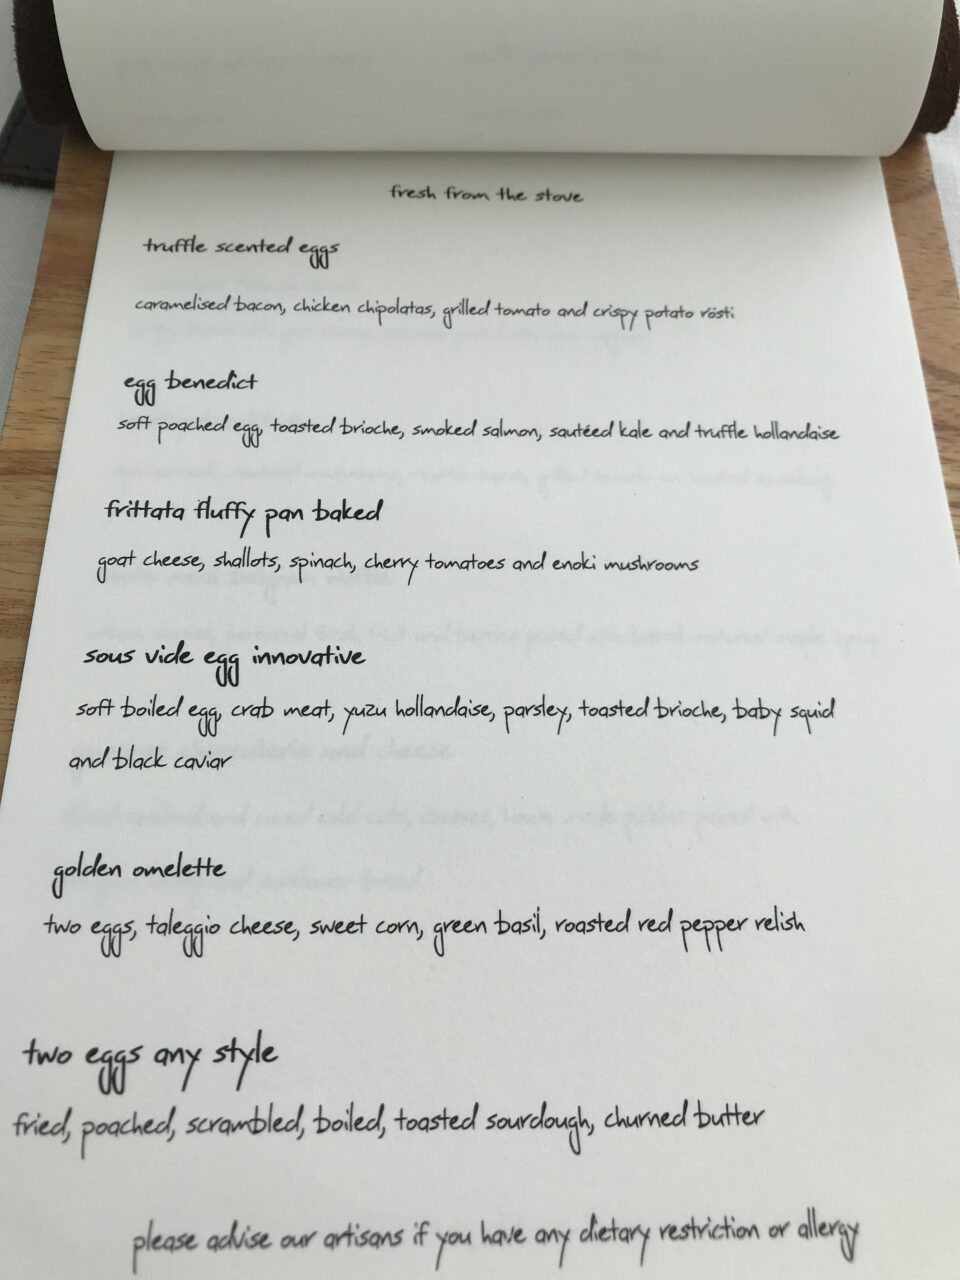 fresh from the stove
truffle scented eggs
caramelised bacon, chicken chipolatas, grilled tomato and crispy potato rösti
egg benedict
soft poached egg, toasted brioche, smoked salmon, sautéed kale and truffle hollandaise
frittata fluffy pan baked
goat cheese, shallots, spinach, cherry tomatoes and enoki mushrooms
sous vide egg innovative
soft boiled egg, crab meat, yuzu hollandaise, parsley, toasted brioche, baby squid
and black caviar
golden omelette
two eggs, taleggio cheese, sweet corn, green basil, roasted red pepper relish
two eggs any style
fried, poached, scrambled, boiled, toasted sourdough, churned butter
please advise our artisans if you have any dietary restriction or allergy